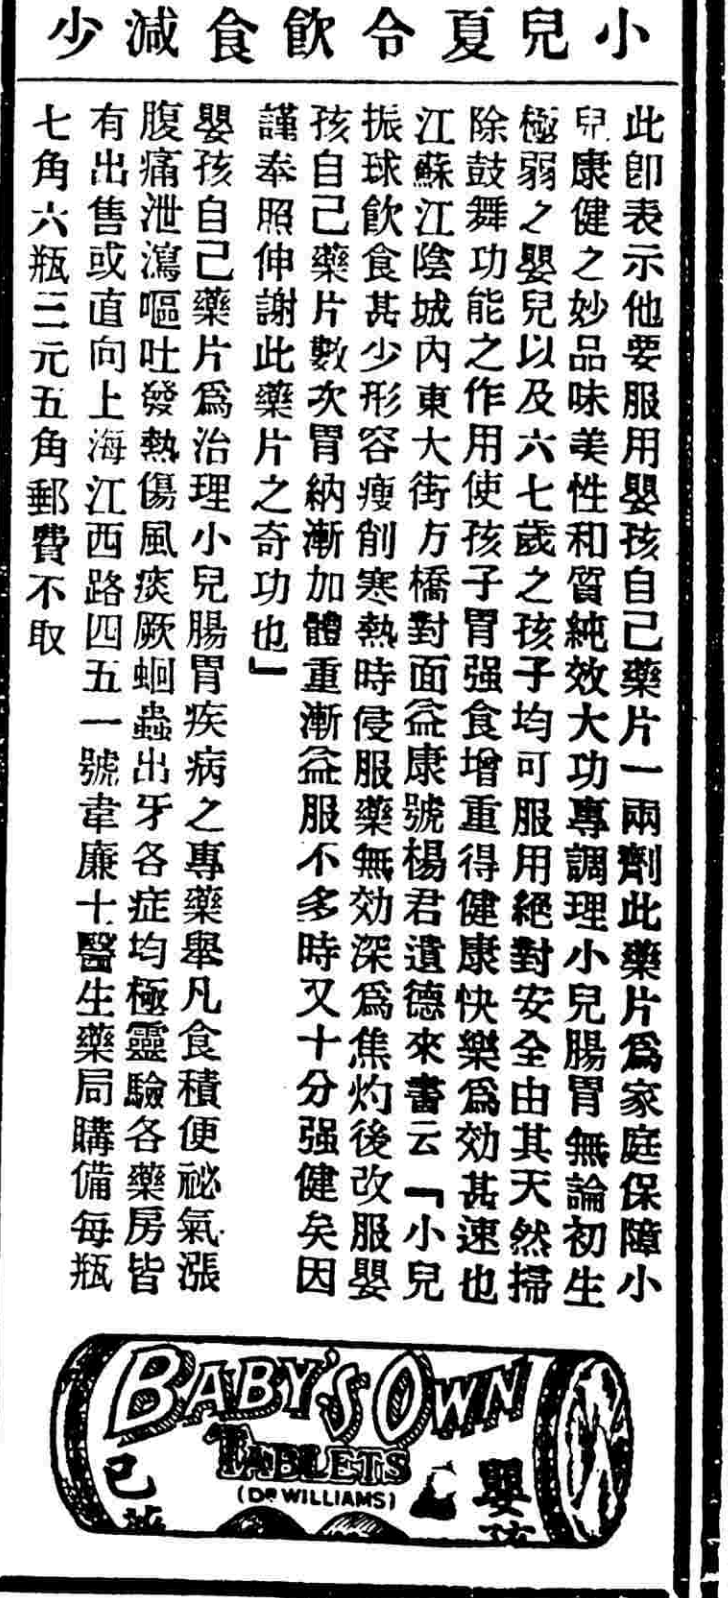 小兒夏令飲食減少
此卽表示他要服用嬰孩自己藥片一兩劑此藥片爲家庭保障小
兒康健之妙品味美性和質純效大功專調理小兒腸胃無論初生
極弱之嬰兒以及六七歲之孩子均可服用絕對安全由其天然掃
除鼓舞功能之作用使孩子胃强食增重得健康快樂爲効甚速也
江蘇江陰城內東大街方橋對面益康號楊君遺德來書云『小兒
振球飲食甚少形容瘦削寒熱時侵服藥無効深爲焦灼後改服嬰
孩自己藥片數次胃納漸加體重漸益服不多時又十分强健矣因
謹奉照伸謝此藥片之奇功也』
嬰孩自己藥片爲治理小兒腸胃疾病之專藥舉凡食積便祕氣漲
腹痛泄瀉嘔吐發熱傷風痰厥蛔蟲出牙各症均極靈驗各藥房皆
有出售或直向上海江西路四五一號韋廉士醫生藥局購備每瓶
七角六瓶三元五角郵費不取
BABY'S OWN
TABLETS
(DR WILLIAMS)
嬰孩
己藥